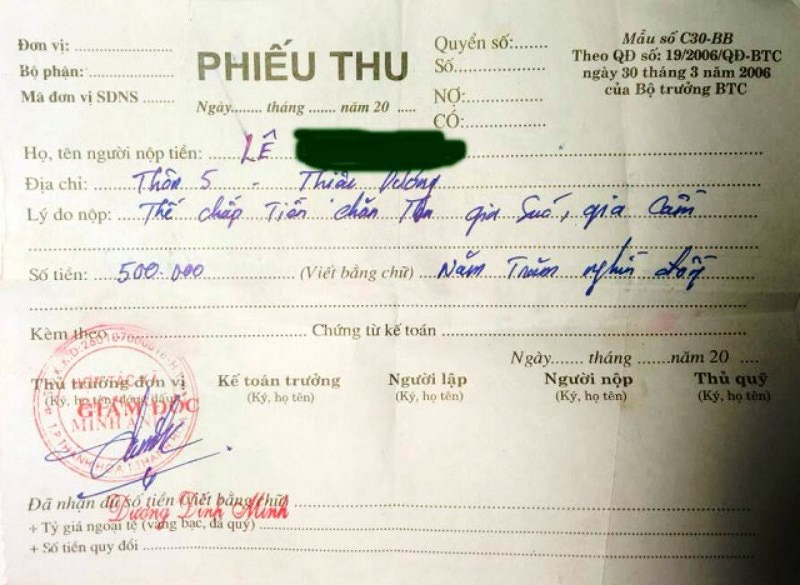 Đơn vị: ............
Bộ phận: ............
Mã đơn vị SDNS ........
PHIẾU THU
Ngày........ tháng ....... năm 20 .....
Quyển số:......
Số..................
NỢ:................
CÓ:................
Mẫu số C30-BB
Theo QĐ số: 19/2006/QĐ-BTC
ngày 30 tháng 3 năm 2006
của Bộ trưởng BTC
Họ, tên người nộp tiền: LÊ
Địa chỉ: Thôn 5 - Thiệu Dương
Lý do nộp: Thế chấp Tiền chăn gia Súc, gia Cầm
Số tiền: 500.000 (Viết bằng chữ) Năm Trăm nghìn đồng
Kèm theo ............ Chứng từ kế toán ............
Ngày....... tháng .........năm 20 ......
Thủ trưởng đơn vị
(Ký, họ tên, đóng dấu)
Kế toán trưởng
(Ký, họ tên)
Người lập
(Ký, họ tên)
Người nộp
(Ký, họ tên)
Thủ quỹ
(Ký, họ tên)
GIÁM ĐỐC
MINH ANH
T.P THANH HÓA T.THANH
Đã nhận đủ số tiền (Viết bằng chữ) ............
Dương Đình Minh
+ Tỷ giá ngoại tệ (vàng bạc, đá quý) ............
+ Số tiền quy đổi ............